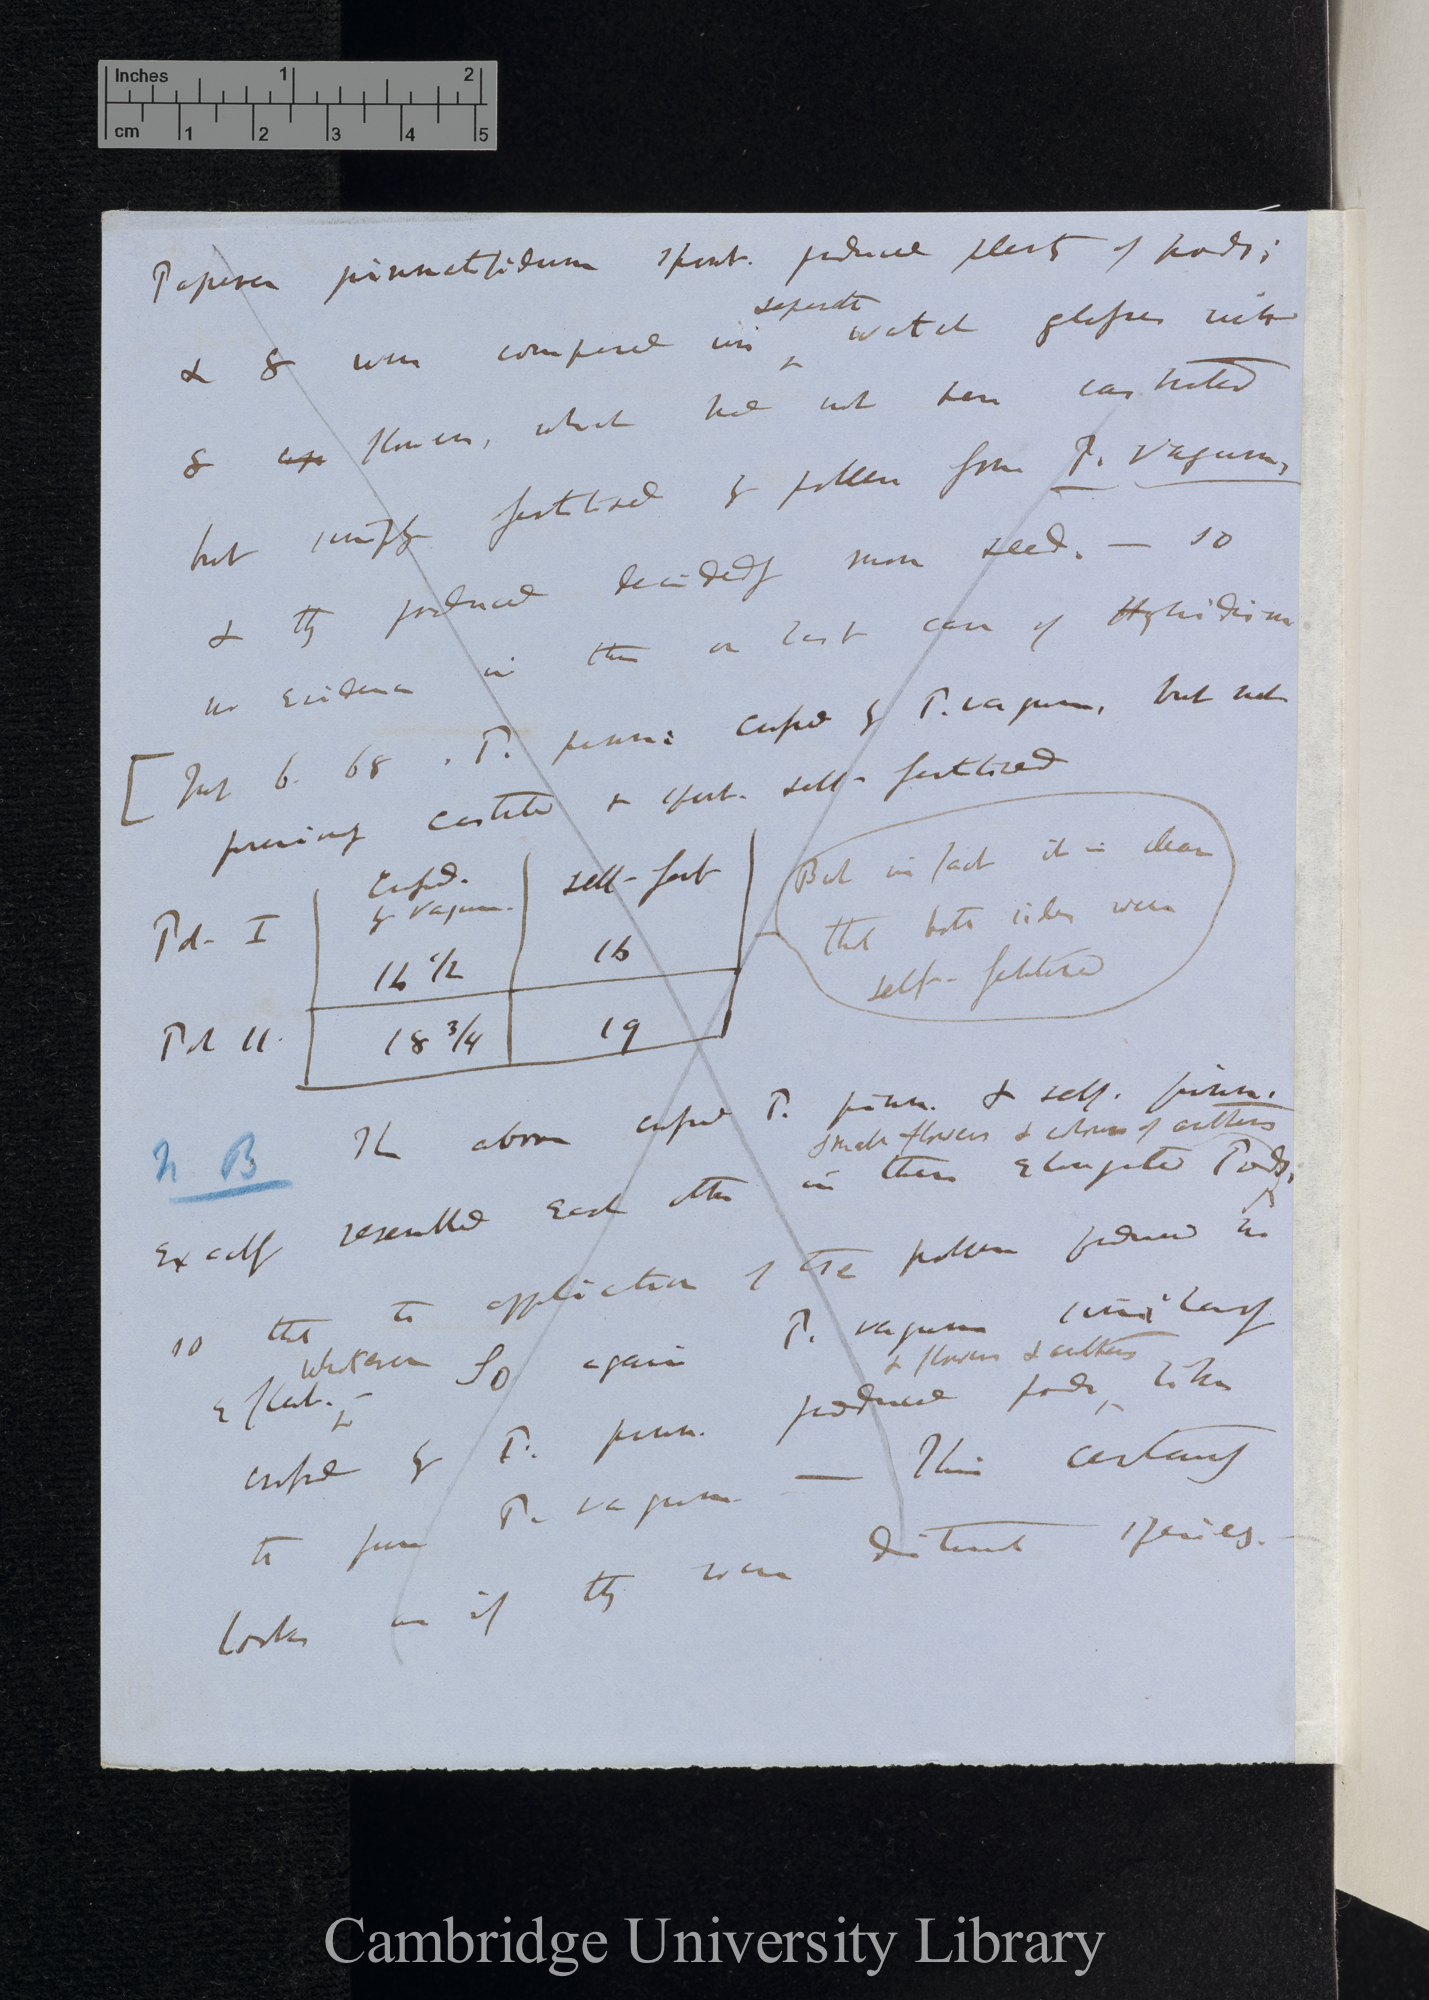 Inches 1 2
cm 1 2 3 4 5
Papaver pinnatifidum spont. produced plenty of pods;
& 8 were compared in separate watch glasses with
8 cap flowers, which had not been castrated
but simply fertilised by pollen from P. vagum,
& they produced decidedly more seed. — so
no evidence in this or last case of Hybridism
[July 6. 68. P. pinn: crossed by P. vagum, but not
previously castrated & spont. self-fertilized
Crossed. by vagum. self-fert
Pd. I 16 1/2 16
Pd II. 18 3/4 19
But in fact it is clear
that both sides were
self-fertilised
N. B The above crossed P. pinn. & self. pinn.
small flowers & colours of anthers
exactly resembled each other in their elongated Pods;
so that the application of the pollen produced no
effect. whatever So again P. vagum similarly
& flowers & anthers
crossed by P. pinn. produced pods like
to pure P. vagum — This certainly
looks as if they were distinct species. —
Cambridge University Library